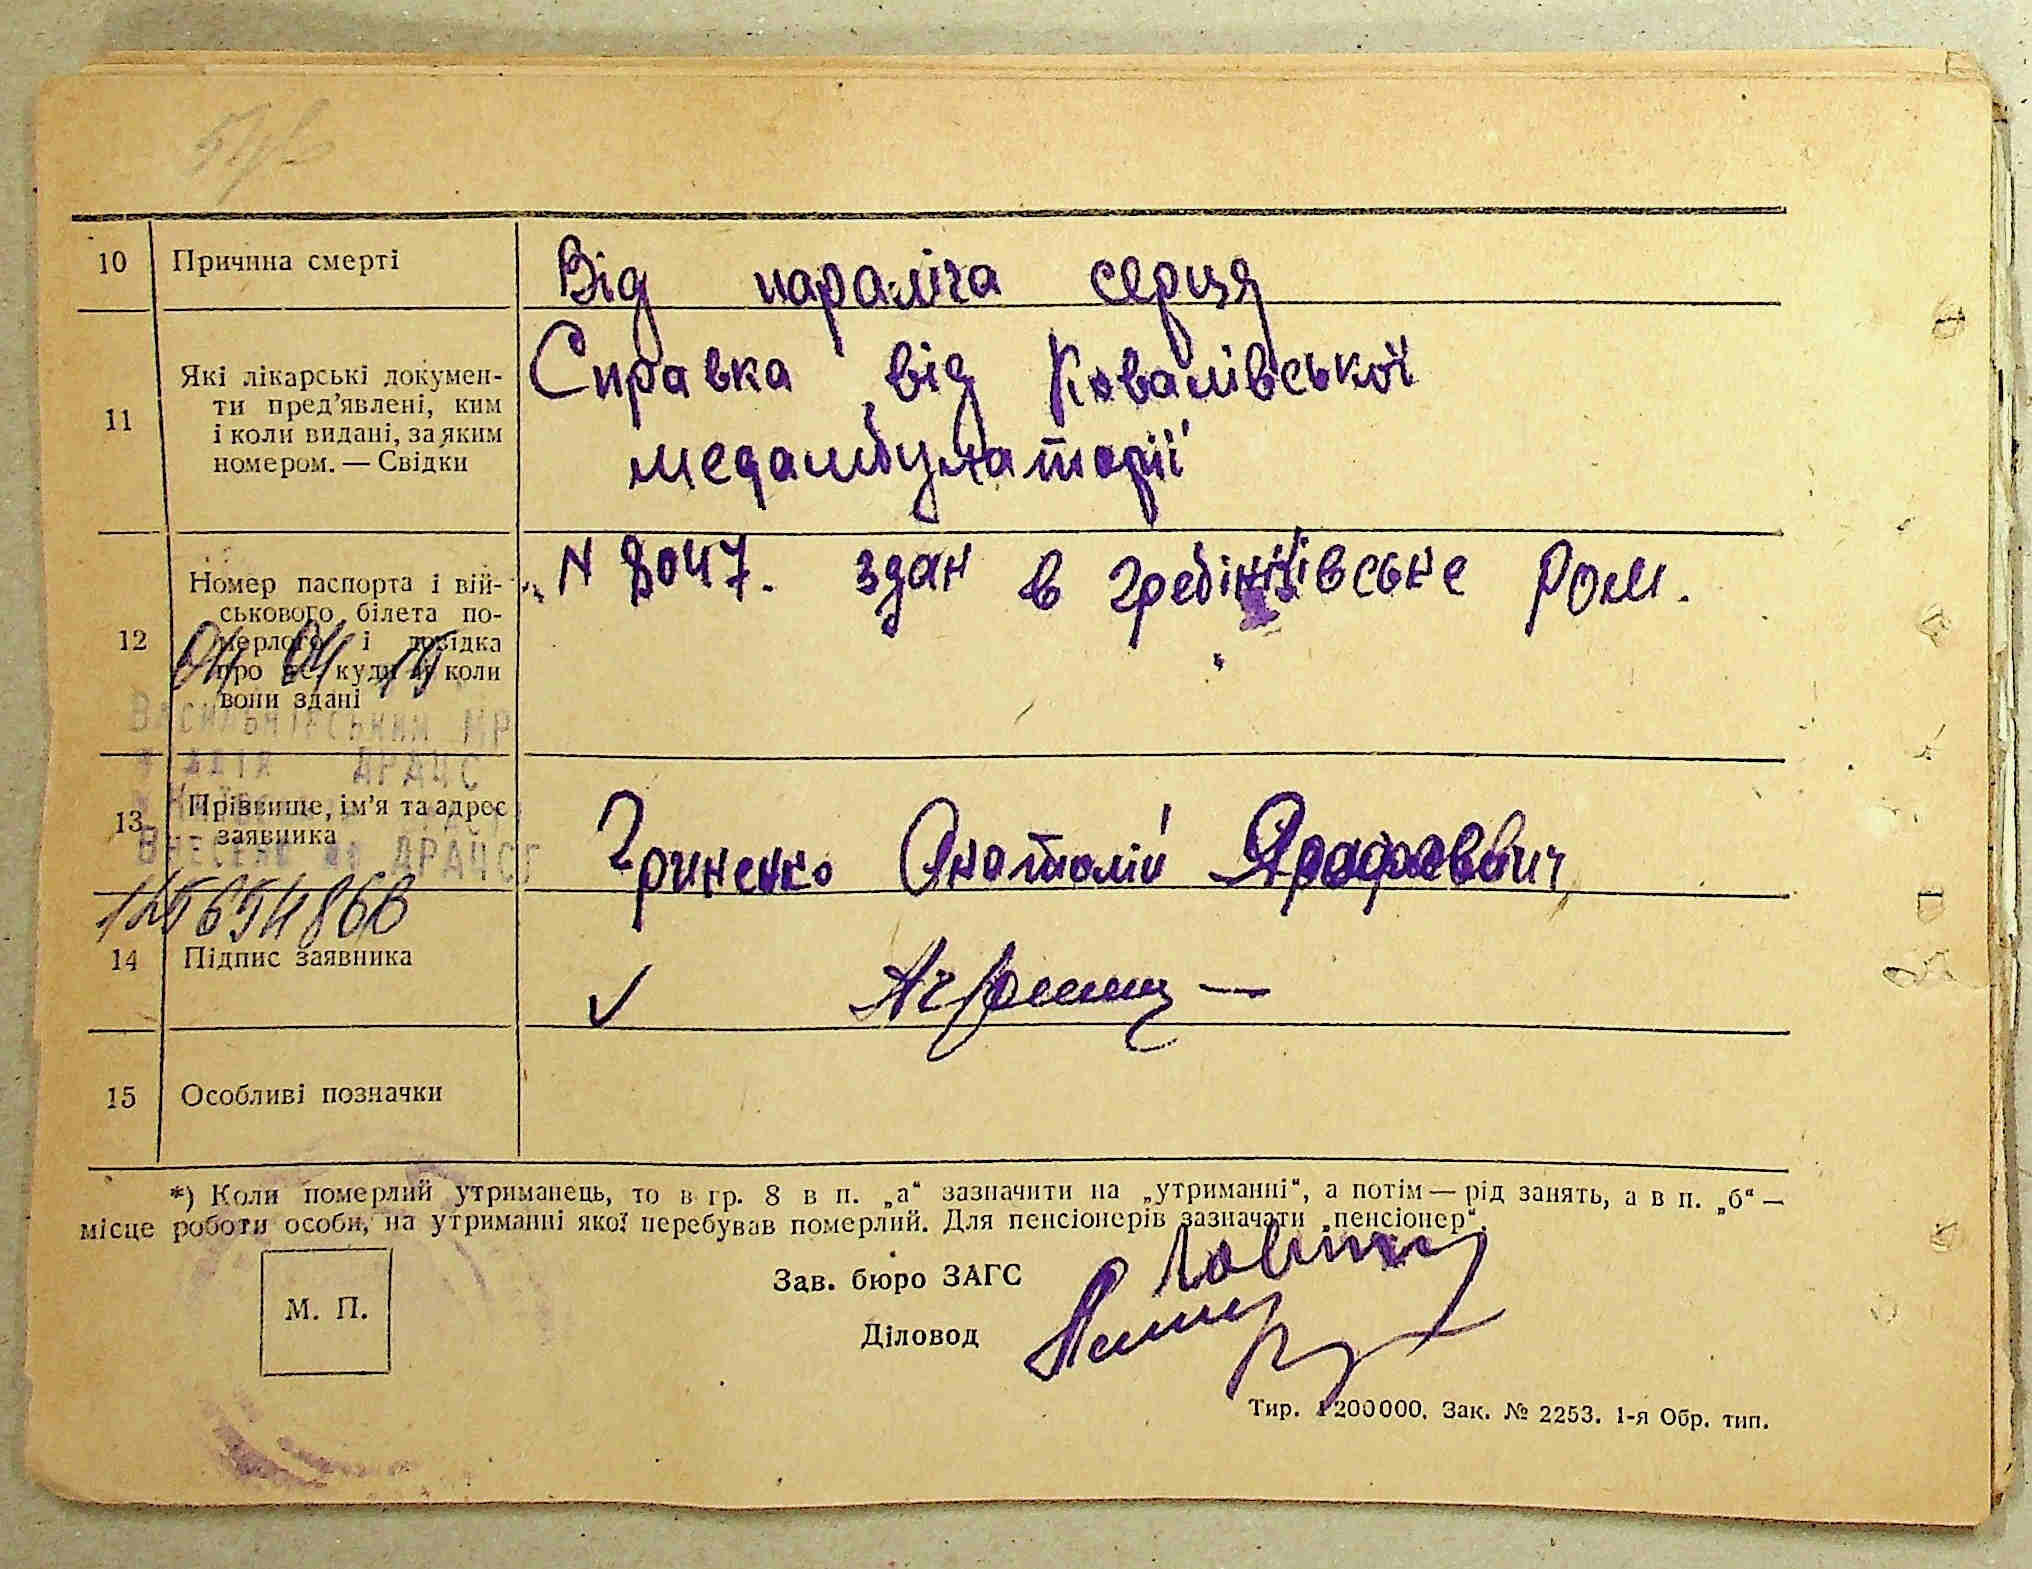 10 Причина смерті Від параліча серця
11 Які лікарські докумен-
ти пред'явлені, ким
і коли видані, за яким
номером. — Свідки
Справка від Ковалівської
медамбулаторії
12 Номер паспорта і вій-
ськового білета по-
мерлого і довідка
про те, куди й коли
вони здані
N 8047. здан в гребінківське РОМ.
04 04 14
Васильківський МР
відділ ДРАЦС
Внесено до ДРАЦСГ
13 Прізвище, ім'я та адрес
заявника
Гриненко Анатолій
14 Підпис заявника
15 Особливі позначки
*) Коли померлий утриманець, то в гр. 8 в п. „а“ зазначити на „утриманні“, а потім — рід занять, а в п. „б“ —
місце роботи особи, на утриманні якої перебував померлий. Для пенсіонерів зазначати „пенсіонер“.
М. П.
Зав. бюро ЗАГС
Діловод
Тир. 1 200 000. Зак. № 2253. 1-я Обр. тип.